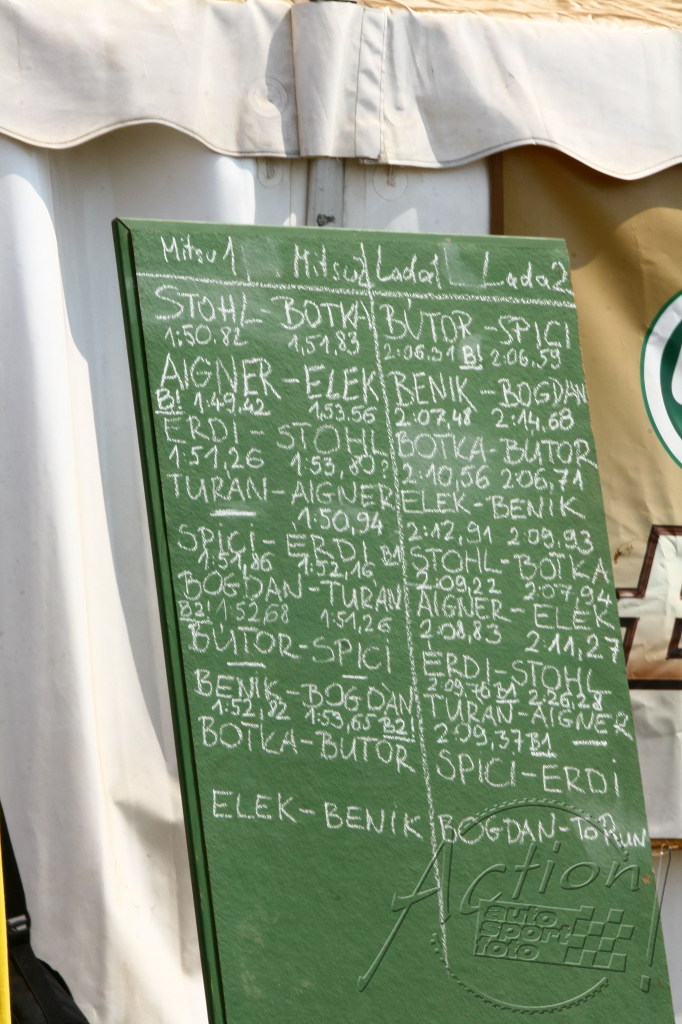 Mitsu 1 Mitsu2 Lada1 Lada2
STOHL-BOTKA
1:50.82 1,51,83
AIGNER-ELEK
B! 1.49,42 1,53.56
ERDI-STOHL
1:51,26 1:53,80?
TURAN-AIGNER
1:50.94
SPICI-ERDI
1:51,86 1:52,16 B1
BOGDAN-TURAN
B2! 1:52,68 1:51,26
BUTOR-SPICI
BENIK-BOGDAN
1:52,82 1:53,65 B2!
BOTKA-BUTOR
ELEK-BENIK
BUTOR-SPICI
2:06.31 B! 2:06.59
BENIK-BOGDAN
2:07,48 2:14.68
BOTKA-BUTOR
2:10,56 2:06,71
ELEK-BENIK
2:12,91 2:09.93
STOHL-BOTKA
2:09,22 2:07,94
AIGNER-ELEK
2:08,83 2:11,27
ERDI-STOHL
2:09,76 B1 2:26,28
TURAN-AIGNER
2:09,37 B1
SPICI-ERDI
BOGDAN-TORUN
Action!
auto
sport
foto